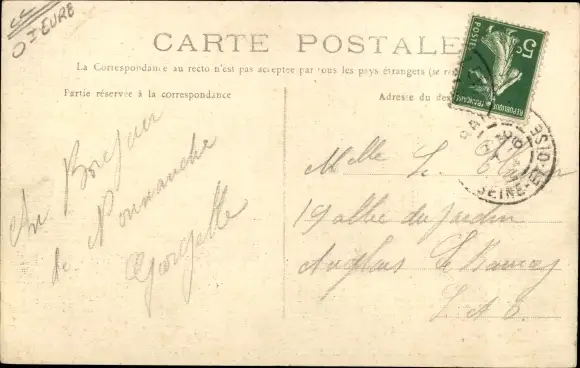 O I EURE
CARTE POSTALE
La Correspondance au recto n'est pas acceptée par tous les pays étrangers (se re
Partie réservée à la correspondance
Adresse du des
5c
POSTES
REPUBLIQUE FRANÇAISE
SEINE-ET-OISE
Un Bonjour
de Normandie
Georgette
Melle L.
19 allée du jardin
Anglais Le Raincy
S. & O.